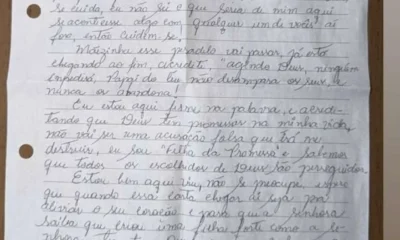 se cuida, eu não sei o que seria de mim aqui
se acontesse algo com qualquer um de vocês aí
fora, então cuidem se,
Mãezinha esse pesadelo vai passar, já está
chegando ao fim, acredite, "agindo Deus, ninguém
impedirá, Pappi do Céu não desampara os seus, e
nunca os abandona!
Eu estou aqui firme na palavra, e acredi-
tando que Deus tem promessas na minha vida,
não vai ser uma acusação falsa que irá me
destruir, eu sou "Filha da Promessa" e sabemos
que todos os escolhidos de Deus são perseguidos.
Estou bem aqui viu, não se preocupe, espero
que quando essa carta chegar aí seja pra
aliviar o seu coração e para que a senhora
saiba que criou uma filha forte como a se-